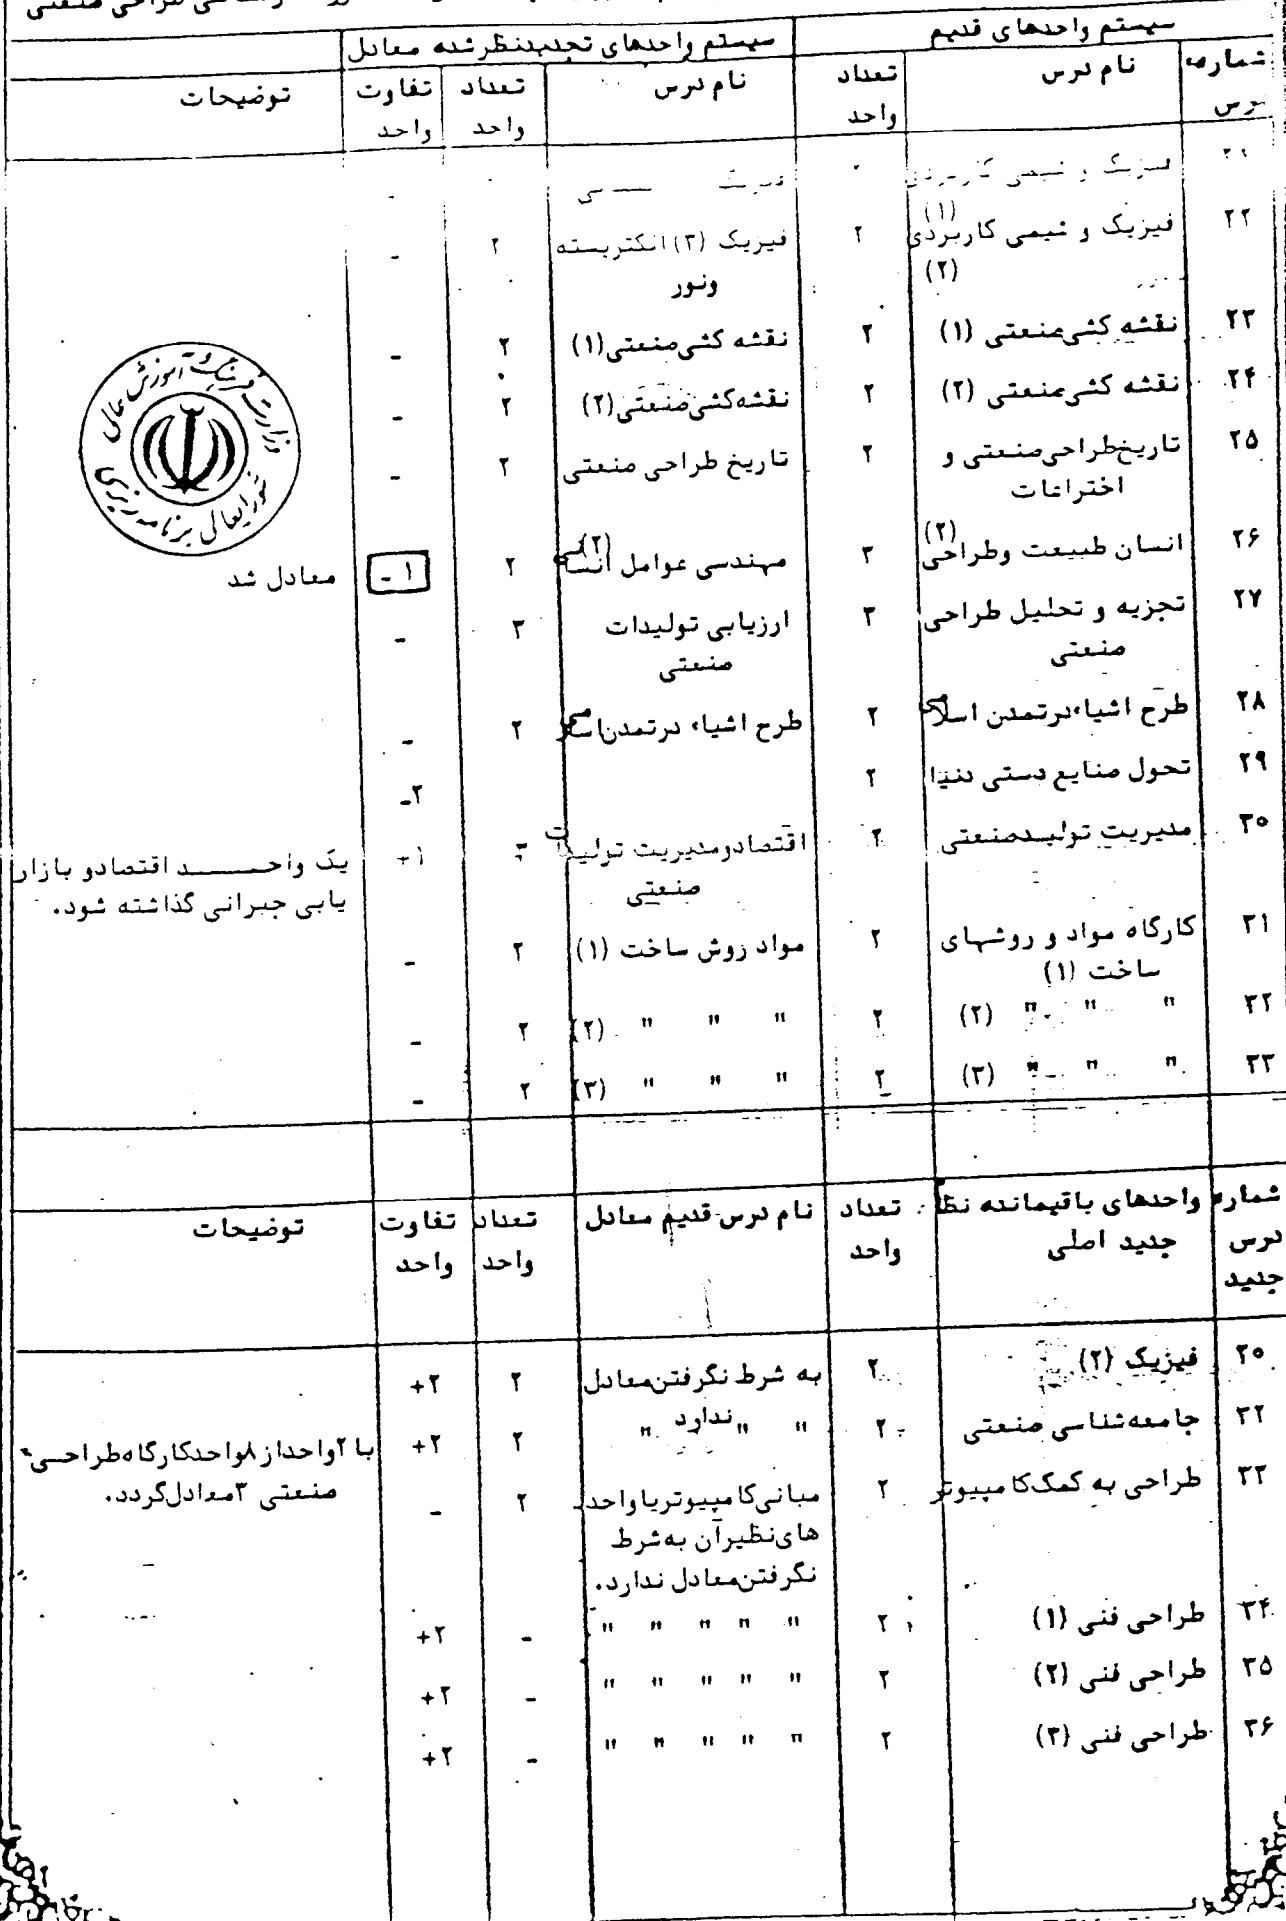 طراحی صنعتی
سیستم واحدهای قدیم | سیستم واحدهای تجدیدنظر شده معادل
شماره درس | نام درس | تعداد واحد | نام درس | تعداد واحد | تفاوت واحد | توضیحات
فیزیک و شیمی کاربردی (۱) | -
۲۲ | فیزیک و شیمی کاربردی (۲) | ۲ | فیزیک (۳) الکتریسته ونور | ۲ | -
۲۳ | نقشه کشی صنعتی (۱) | ۲ | نقشه کشی صنعتی (۱) | ۲ | -
۲۴ | نقشه کشی صنعتی (۲) | ۲ | نقشه کشی صنعتی (۲) | ۲ | -
۲۵ | تاریخ طراحی صنعتی و اختراعات | ۲ | تاریخ طراحی صنعتی | ۲ | -
۲۶ | انسان طبیعت وطراحی (۲) | ۳ | مهندسی عوامل انسانی (۲) | ۲ | ۱- | معادل شد
۲۷ | تجزیه و تحلیل طراحی صنعتی | ۳ | ارزیابی تولیدات صنعتی | ۳ | -
۲۸ | طرح اشیاء درتمدن اسلامی | ۲ | طرح اشیاء درتمدن اسلامی | ۲ | -
۲۹ | تحول صنایع دستی دنیا | ۲ | ۲-
۳۰ | مدیریت تولیدصنعتی | ۲ | اقتصادومدیریت تولیدات صنعتی | ۳ | ۱+ | یک واحد اقتصادو بازار یابی جبرانی گذاشته شود.
۳۱ | کارگاه مواد و روشهای ساخت (۱) | ۲ | مواد روش ساخت (۱) | ۲ | -
۳۲ | " " " (۲) | ۲ | " " " (۲) | ۲ | -
۳۳ | " " " (۳) | ۲ | " " " (۳) | ۲ | -
شماره درس جدید | واحدهای باقیمانده نظام جدید اصلی | تعداد واحد | نام درس قدیم معادل | تعداد واحد | تفاوت واحد | توضیحات
۲۰ | فیزیک (۲) | ۲ | به شرط نگرفتن معادل ندارد | ۲ | ۲+
۳۲ | جامعه شناسی صنعتی | ۲ | " " " | ۲ | ۲+ | با ۲ واحداز ۸واحدکارگاه طراحی صنعتی ۳ معادل گردد.
۳۳ | طراحی به کمک کامپیوتر | ۲ | مبانی کامپیوتریا واحدهای نظیرآن به شرط نگرفتن معادل ندارد. | ۲ | -
۳۴ | طراحی فنی (۱) | ۲ | " " " " " | - | ۲+
۳۵ | طراحی فنی (۲) | ۲ | " " " " " | - | ۲+
۳۶ | طراحی فنی (۳) | ۲ | " " " " " | - | ۲+
وزارت فرهنگ و آموزش عالی
شورایعالی برنامه ریزی